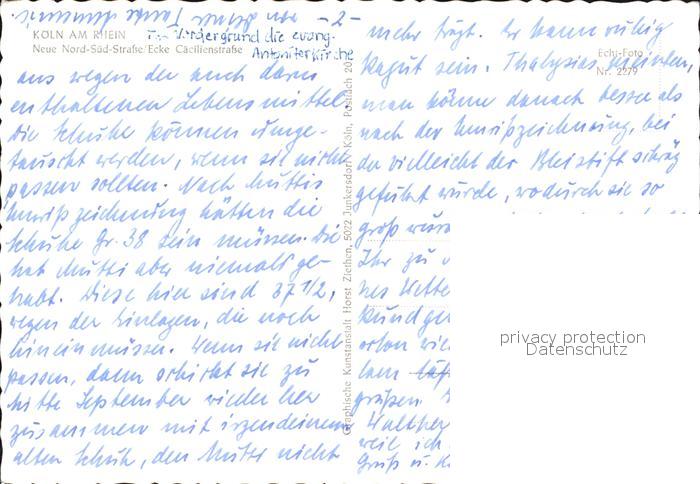 -2-
KÖLN AM RHEIN
Im Vordergrund die evang.
Neue Nord-Süd-Straße/Ecke Cäcilienstraße
Antoniterkirche
aus wegen der auch darin
enthaltenen Lebensmittel.
Die Schuhe können umge-
tauscht werden, wenn sie nicht
passen sollten. Nach Muttis
Umrißzeichnung hätten die
Schuhe Gr. 38 sein müssen. Die
hat Mutti aber niemals ge-
habt. Diese hier sind 37 1/2,
wegen der Einlagen, die noch
hinein müssen. Wenn sie nicht
passen, dann schickt sie zu
Mitte September wieder her
zusammen mit irgendeinem
alten Schuh, den Mutter nicht
Graphische Kunstanstalt Horst Ziethen, 5022 Junkersdorf / Köln, Postfach 20
mehr trägt. Er kann ruhig
kaputt sein. Thalysias meinten,
Echt-Foto
Nr. 2279
man könne danach besser als
nach der Umrißzeichnung, bei
der vielleicht der Bleistift schräg
geführt wurde, wodurch sie so
groß wurd
Ihr zu
nes Wette
kund
schon vie
lam
grüßen.
Walther
weil ich
Gruß u. K
privacy protection
Datenschutz